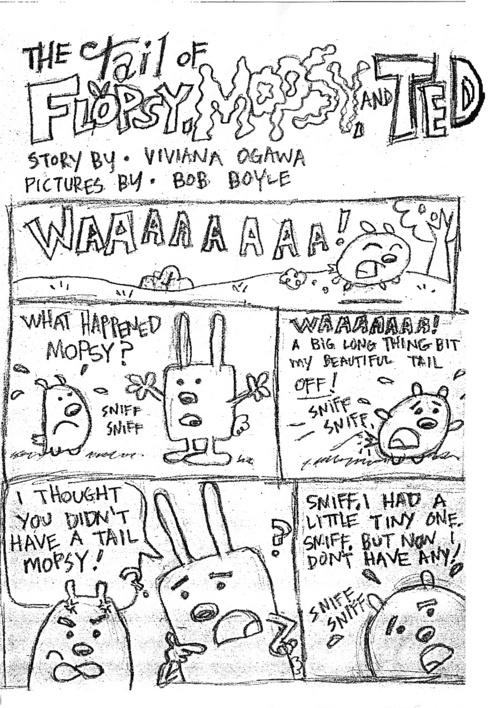 THE tail OF
FLOPSY, MOPSY, AND TED
STORY BY • VIVIANA OGAWA
PICTURES BY • BOB BOYLE
WAAAAAAAA!
WHAT HAPPENED
MOPSY?
SNIFF
SNIFF
WAAAAAAA!
A BIG LONG THING BIT
MY BEAUTIFUL TAIL
OFF!
SNIFF
SNIFF.
I THOUGHT
YOU DIDN'T
HAVE A TAIL
MOPSY!
?
?
SNIFF, I HAD A
LITTLE TINY ONE.
SNIFF. BUT NOW I
DON'T HAVE ANY!
SNIFF
SNIFF